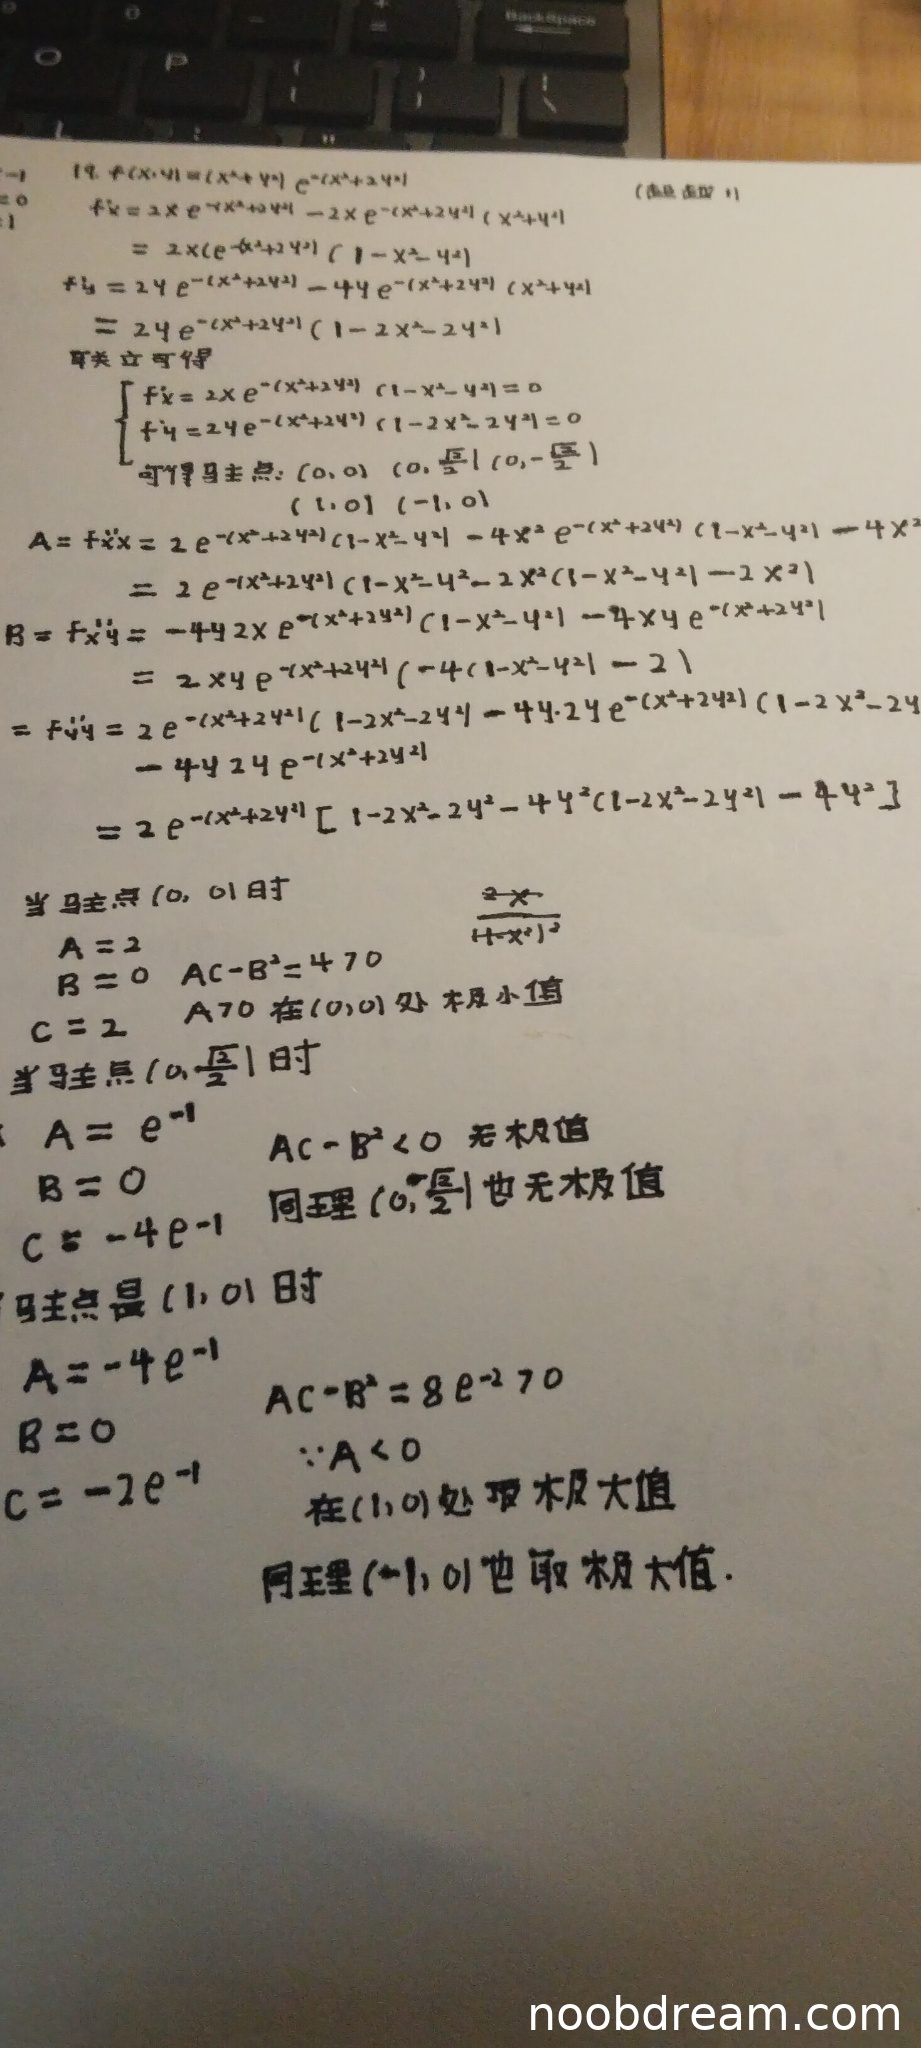 BackSpace
O
P
19. f(x·y)=(x²+y²) e^-(x²+2y²)
f'x = 2x e^-(x²+2y²) - 2x e^-(x²+2y²) (x²+y²)
= 2x(e^-(x²+2y²) (1-x²-y²)
f'y = 2y e^-(x²+2y²) - 4y e^-(x²+2y²) (x²+y²)
= 2y e^-(x²+2y²) (1-2x²-2y²)
联立可得
f'x = 2x e^-(x²+2y²) (1-x²-y²)=0
f'y = 2y e^-(x²+2y²) (1-2x²-2y²)=0
可得驻点: (0,0) (0, √2/2) (0,-√2/2)
(1,0) (-1,0)
A = f''xx = 2 e^-(x²+2y²) (1-x²-y²) - 4x² e^-(x²+2y²) (1-x²-y²) - 4x²
= 2 e^-(x²+2y²) (1-x²-y²-2x²(1-x²-y²)-2x²)
B = f''xy = -4y2x e^-(x²+2y²) (1-x²-y²) - 4xy e^-(x²+2y²)
= 2xy e^-(x²+2y²) (-4(1-x²-y²)-2)
= f''yy = 2 e^-(x²+2y²) (1-2x²-2y²) - 4y·2y e^-(x²+2y²) (1-2x²-2y
- 4y 2y e^-(x²+2y²)
= 2 e^-(x²+2y²) [ 1-2x²-2y²-4y²(1-2x²-2y²) - 4y² ]
当驻点(0, 0)时
A = 2
B = 0 AC-B²=4>0
C = 2 A>0 在(0,0)处 极小值
当驻点(0, √2/2)时
A = e^-1
AC-B²<0 无极值
B = 0
同理(0,-√2/2)也无极值
C = -4e^-1
驻点是(1,0)时
A = -4e^-1
AC-B² = 8e^-2>0
B = 0
∵A<0
C = -2e^-1
在(1,0)处取极大值
同理(-1,0)也取极大值.
noobdream.com